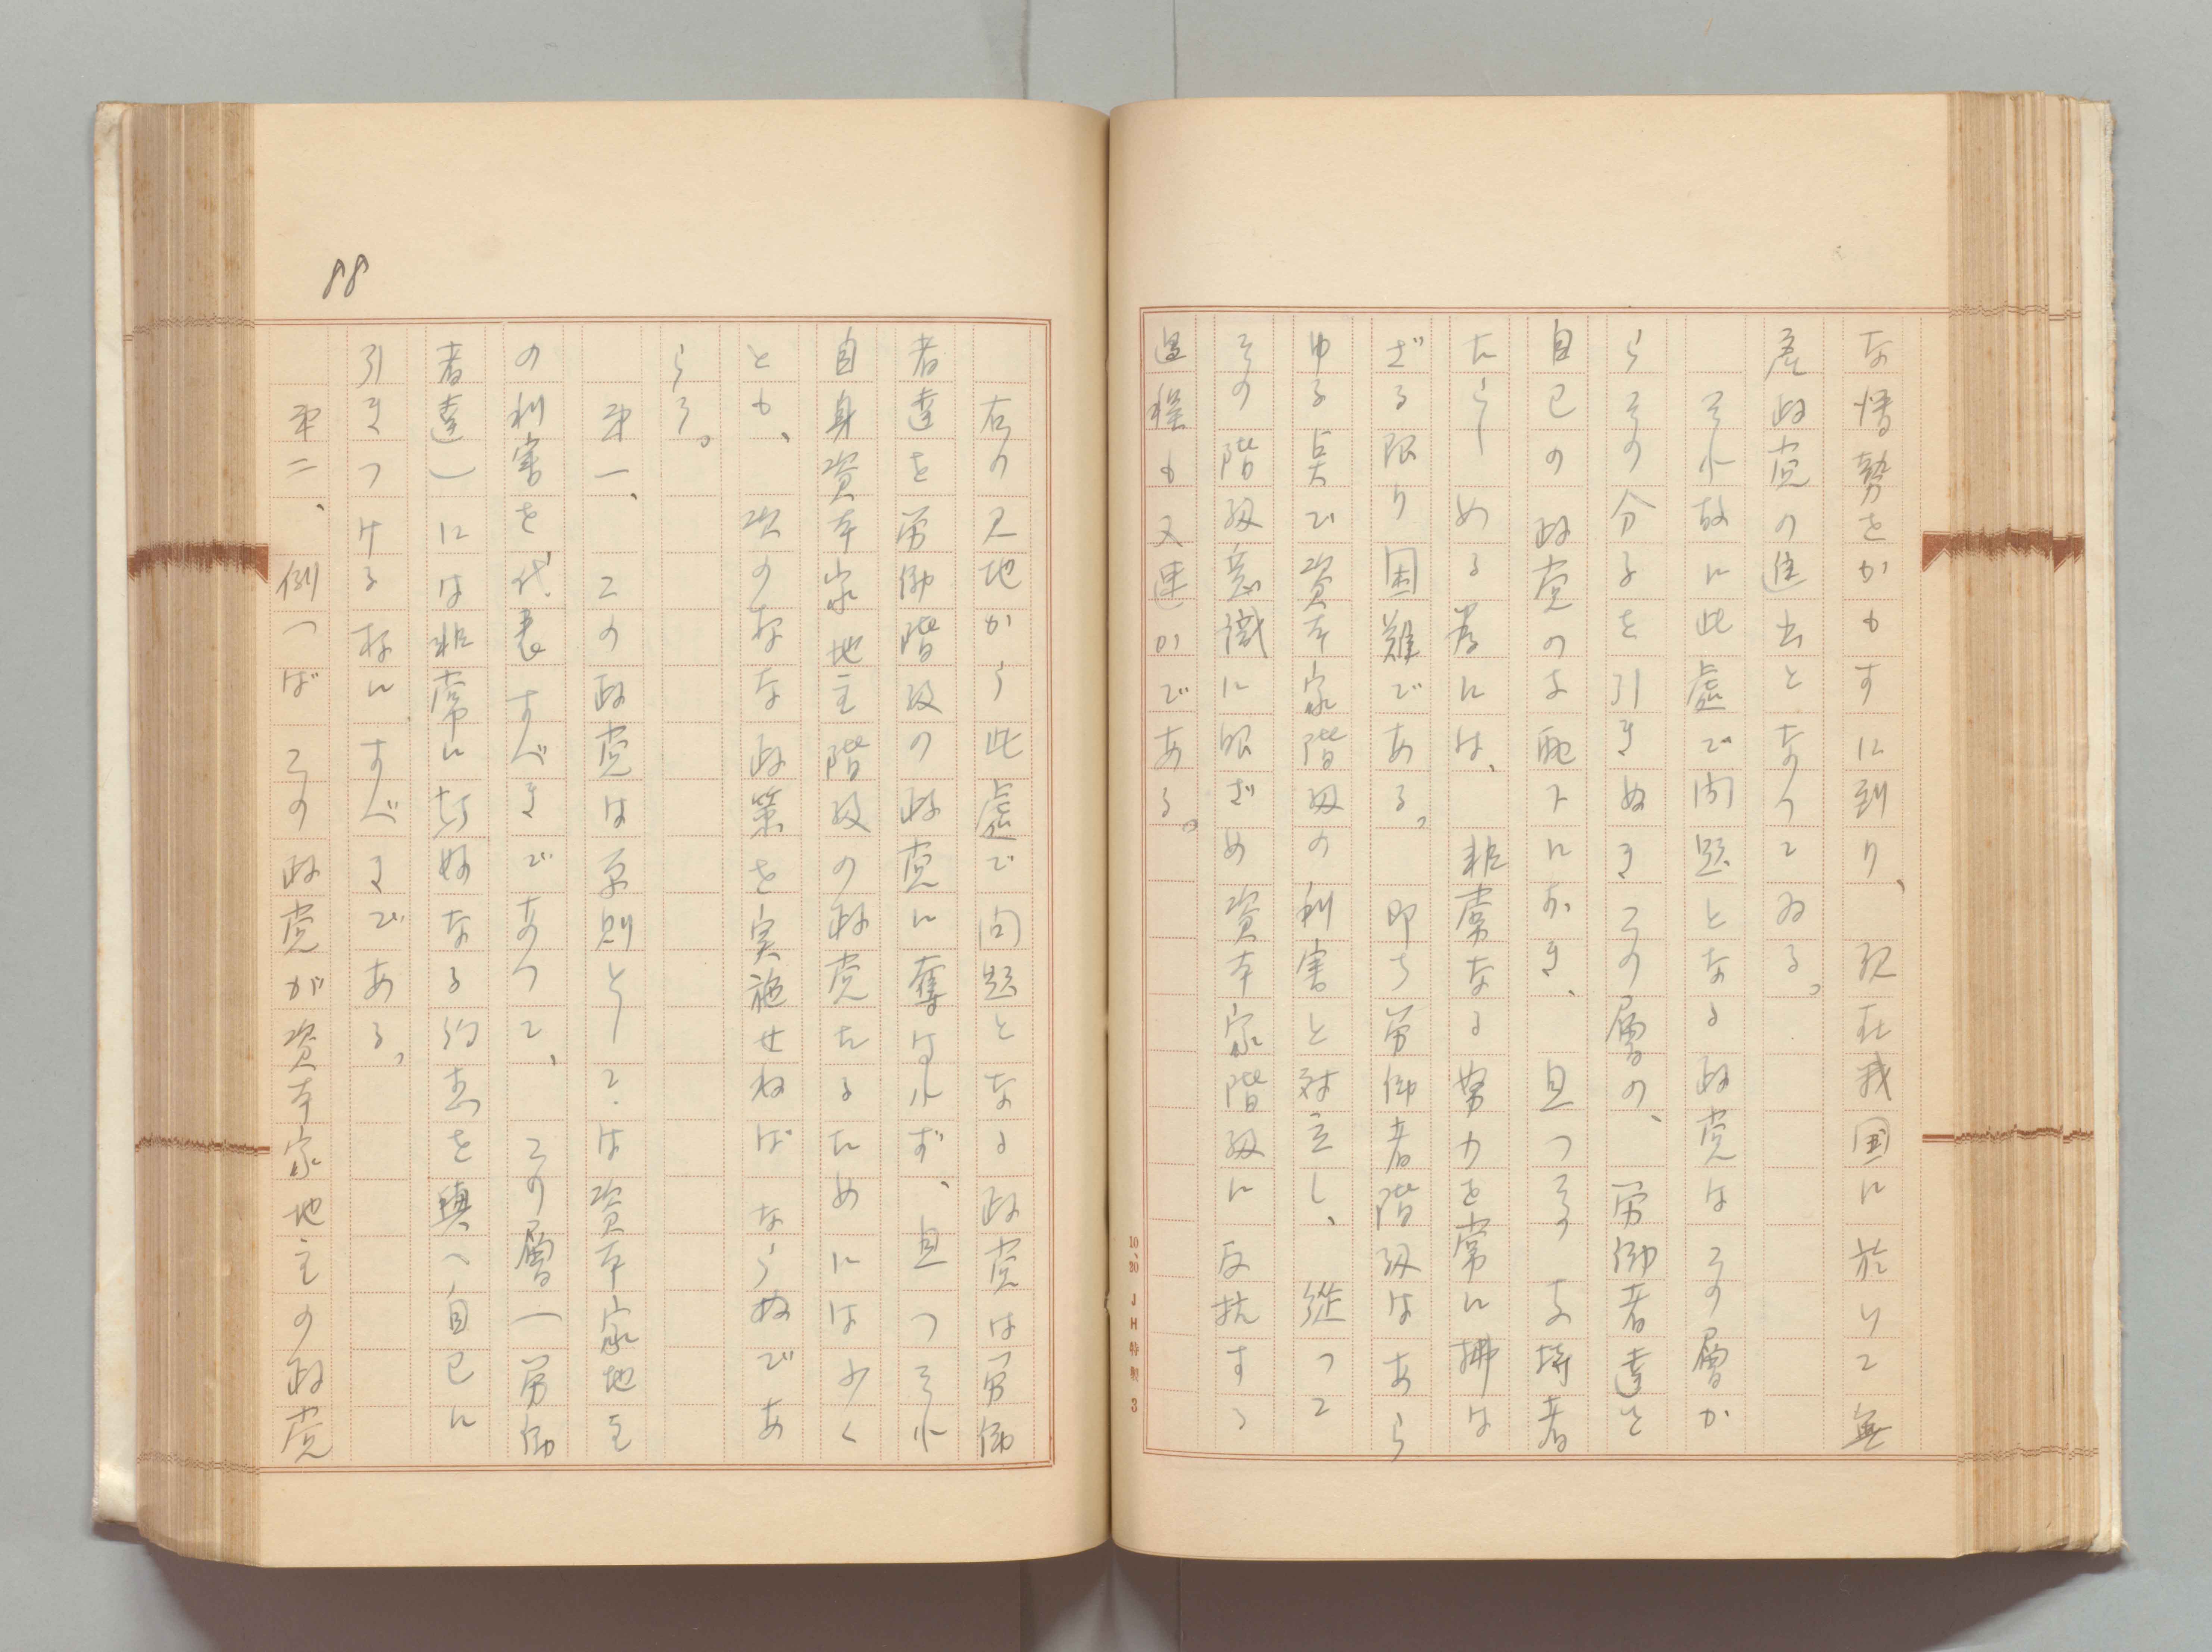 な情勢をかもすに到り、現在我国に於いて無
産政党の進出となつてゐる。
それ故に此処で問題となる政党はその層か
らその分子を引きぬきその層の、労働者達を
自己の政党の支配下におき、且つその支持者
たらしめる為には、非常なる努力を常に拂は
ざる限り困難である。即ち労働者階級はあら
ゆる点で資本家階級の利害と対立し、從つて
その階級意識に眼ざめ資本家階級に反抗する
過程も又速かである。
10、20 JH特製 3
88
右の見地から此処で問題となる政党は労働
者達を労働階級の政党に奪はれず、且つそれ
自身資本家地主階級の政党たるためには少く
とも、次の如な政策を実施せねばならぬであ
らう。
第一、この政党は原則として.は資本家地主
の利害を代表すべきであつて、その層(労働
者達)には非常に好餌なる約束を與へ自己に
引きつける如にすべきである。
第二、例へばその政党が資本家地主の政党